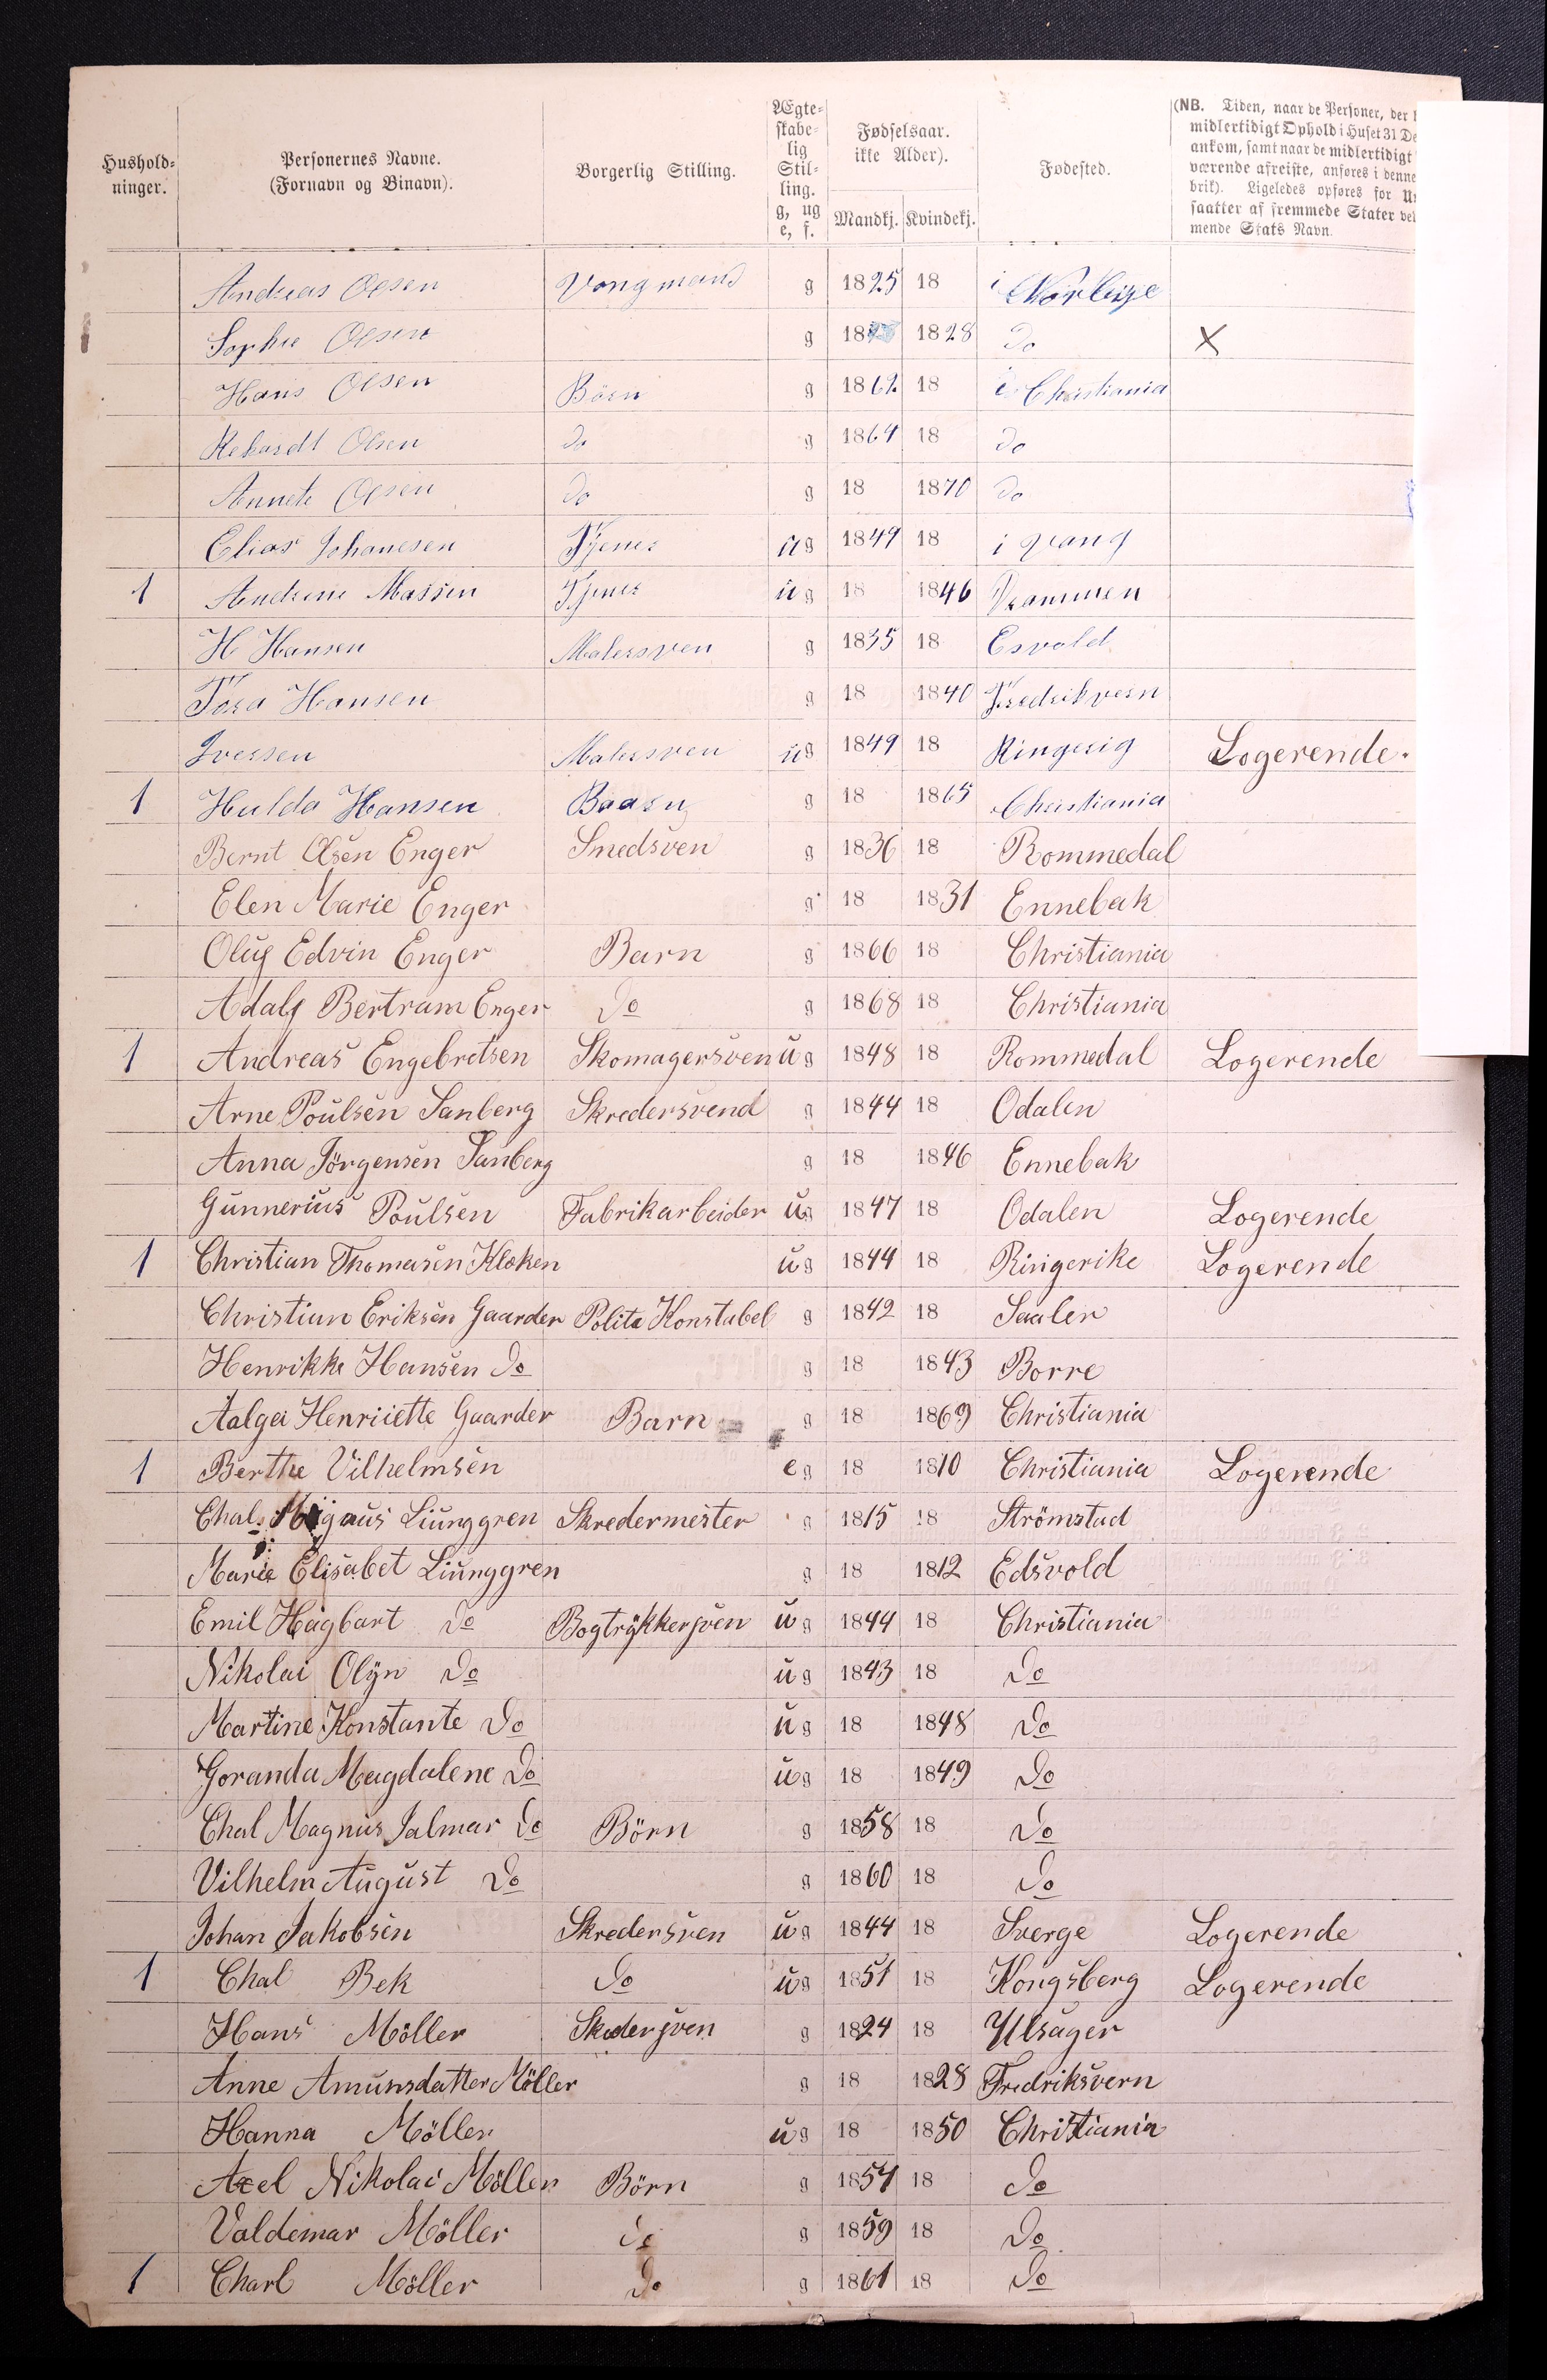 Hushold-
ninger.
Personernes Navne.
(Fornavn og Binavn).
Borgerlig Stilling.
Ægte-
skabe-
lig
Stil-
ling.
g, ug
e, f.
Fødselsaar.
ikke Alder).
Mandkj. Kvindekj.
Fødested.
(NB. Tiden, naar de Personer, der
midlertidigt Ophold i Huset 31 De
ankom, samt naar de midlertidigt
værende afreiste, anføres i denne
brik). Ligeledes opføres for
saatter af fremmede Stater
mende Stats Navn.
Andreas Olsen Vongmand g 1825 18 i
Sophie Olsen g 18 1828 do X
Hans Olsen Börn g 1862 18 i Christiania
Olsen do g 1864 18 do
Annete Olsen do g 18 1870 do
Elias Johanesen Tjener ug 1849 18 i Vang
1 Andrine Massen Tjener ug 18 1846 Drammen
H Hansen Malersven g 1835 18 Esvold
Tora Hansen g 18 1840 Fredrikvern
Iversen Malersven ug 1849 18 Ringerig Logerende.
1 Hulda Hansen Baarn g 18 1865 Christiania
Bernt Olsen Enger Smedsven g 1836 18 Rommedal
Elen Marie Enger g 18 1831 Ennebak
Oluf Edvin Enger Barn g 1866 18 Christiania
Adalf Bertram Enger Do g 1868 18 Christiania
1 Andreas Engebretsen Skomagersven ug 1848 18 Rommedal Logerende
Arne Poulsen Sanberg Skredersvend g 1844 18 Odalen
Anna Jörgensen Sanberg g 18 1846 Ennebak
Gunnerius Poulsen Fabrikarbeider ug 1847 18 Odalen Logerende
1 Christian Thomasen Kloken ug 1844 18 Ringerike Logerende
Christian Eriksen Gaarder Politi Konstabel g 1842 18 Saaler
Henrikke Hansen Do g 18 1843 Borre
Aalga Henriiette Gaarder Barn g 18 1869 Christiania
1 Berthe Vilhelmsen eg 18 1810 Christiania Logerende
Chal. Liunggren Skredermester g 1815 18 Strömstad
Marie Elisabet Liunggren g 18 1812 Edsvold
Emil Hagbart Do Bogtrykkersven ug 1844 18 Christiania
Nikolai Olyn Do ug 1843 18 Do
Martine Konstante Do ug 18 1848 Do
Goranda Magdalene Do ug 18 1849 Do
Chal Magnus Jalmar Do Börn g 1858 18 Do
Vilhelm August Do g 1860 18 Do
Johan Jakobsen Skredersven ug 1844 18 Sverge Logerende
1 Chal Bek Do ug 1851 18 Kongsberg Logerende
Hans Möller Skedersven g 1824 18 Ulsager
Anne Amunsdatter Möller g 18 1828 Fredriksvern
Hanna Möller ug 18 1850 Christiania
Axel Nikolai Möller Börn g 1854 18 Do
Valdemar Möller Do g 1859 18 Do
1 Charl Möller Do g 1861 18 Do